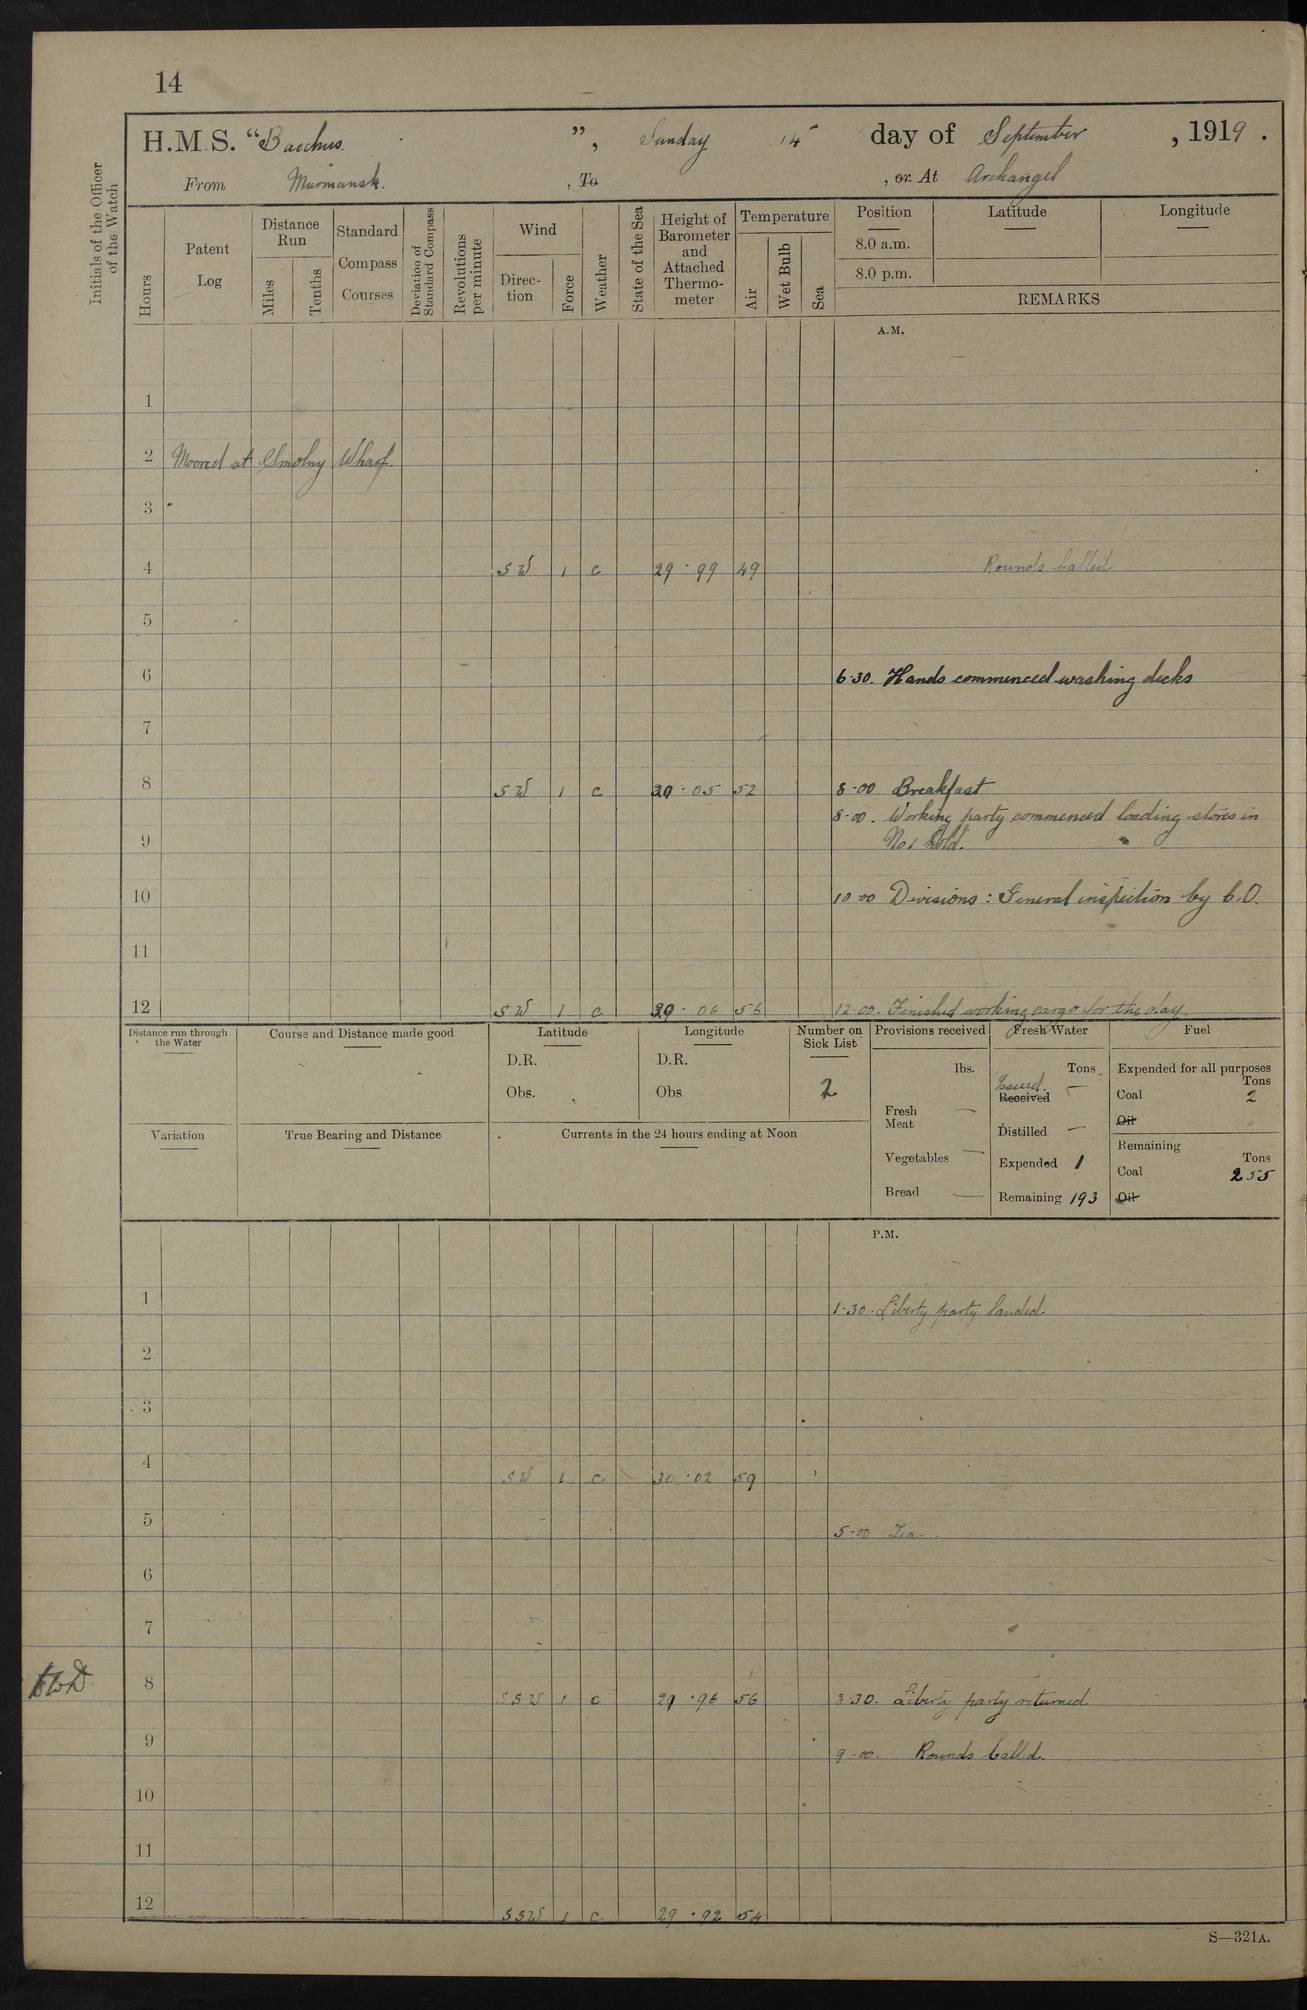 14
H.M.S. "Bacchus.", Sunday 14 day of September, 1919.
From Murmansk., To , or At Archangel
Initials of the Officer of the Watch
Hours
Patent Log
Distance Run
Miles
Tenths
Standard Compass Courses
Deviation of Standard Compass
Revolutions per minute
Wind
Direction
Force
Weather
State of the Sea
Height of Barometer and Attached Thermometer
Temperature
Air
Wet Bulb
Sea
Position Latitude Longitude
8.0 a.m.
8.0 p.m.
REMARKS
A.M.
1
2 Moored at Smolny Wharf.
3
4 SW 1 c 29·99 49 Rounds Called
5
6 6·30. Hands commenced washing decks
7
8 SW 1 c 30·05 52 8-00 Breakfast
8-00. Working party commenced loading stores in
9 No 1 hold.
10 10·00 Divisions: General inspection by C.O.
11
12 SW 1 c 30·06 56 12·00. Finished working cargo for the day.
Distance run through the Water
Course and Distance made good
Latitude
D.R.
Obs.
Longitude
D.R.
Obs.
Number on Sick List
2
Provisions received
lbs.
Fresh Meat —
Vegetables —
Bread —
Fresh Water
Tons
Issued.
Received —
Distilled —
Expended 1
Remaining 193
Fuel
Expended for all purposes
Tons
Coal 2
Oil
Remaining
Tons
Coal 255
Oil
Variation
True Bearing and Distance
Currents in the 24 hours ending at Noon
P.M.
1 1·30. Liberty party landed
2
3
4 SW 1 c 30·02 59
5 5-00 Tea.
6
7
8 SSW 1 c 29·96 56 8·30. Liberty party returned
9 9-00. Rounds Called.
10
11
12 SSW 1 c. 29·92 54
S—321A.